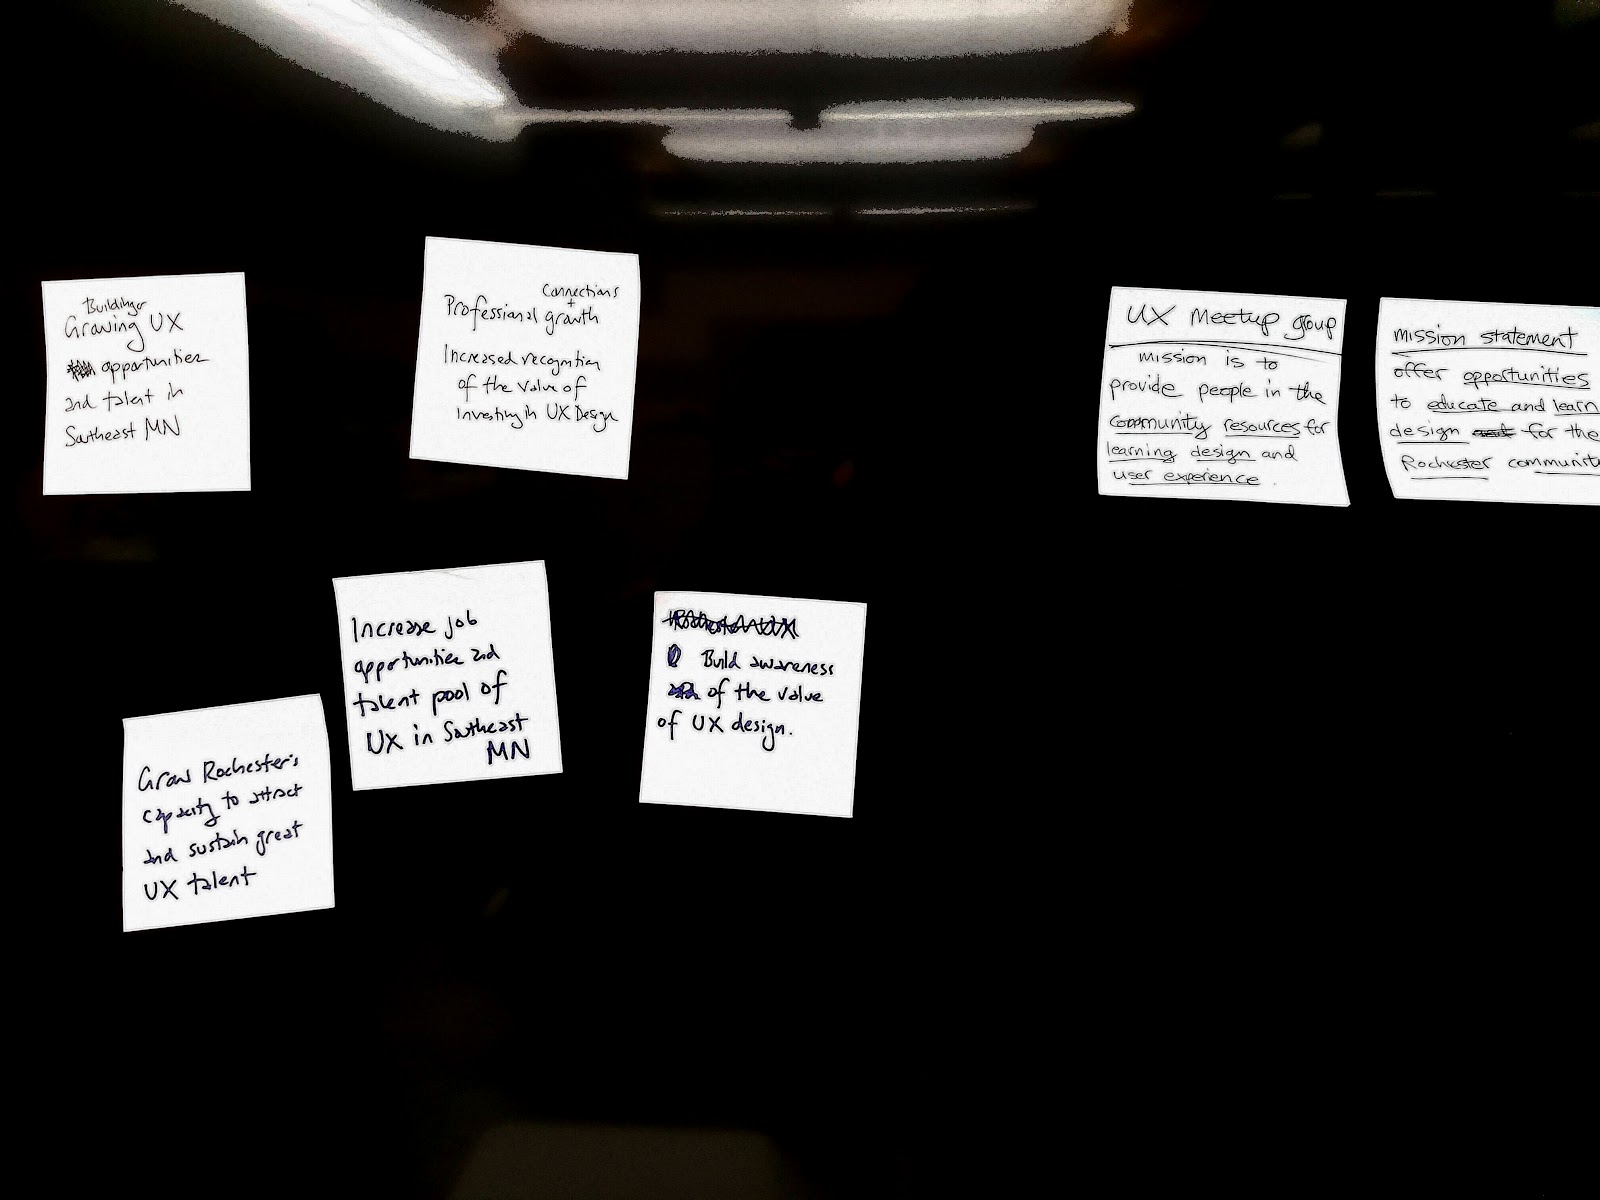 Building or
Growing UX
opportunities
and talent in
Southeast MN
Connections
+
Professional growth
Increased recognition
of the value of
investing in UX Design
UX Meetup group
mission is to
provide people in the
community resources for
learning design and
user experience.
mission statement
offer opportunities
to educate and learn
design for the
Rochester communit
Increase job
opportunities and
talent pool of
UX in Southeast
MN
Build awareness
of the value
of UX design.
Grow Rochester's
capacity to attract
and sustain great
UX talent